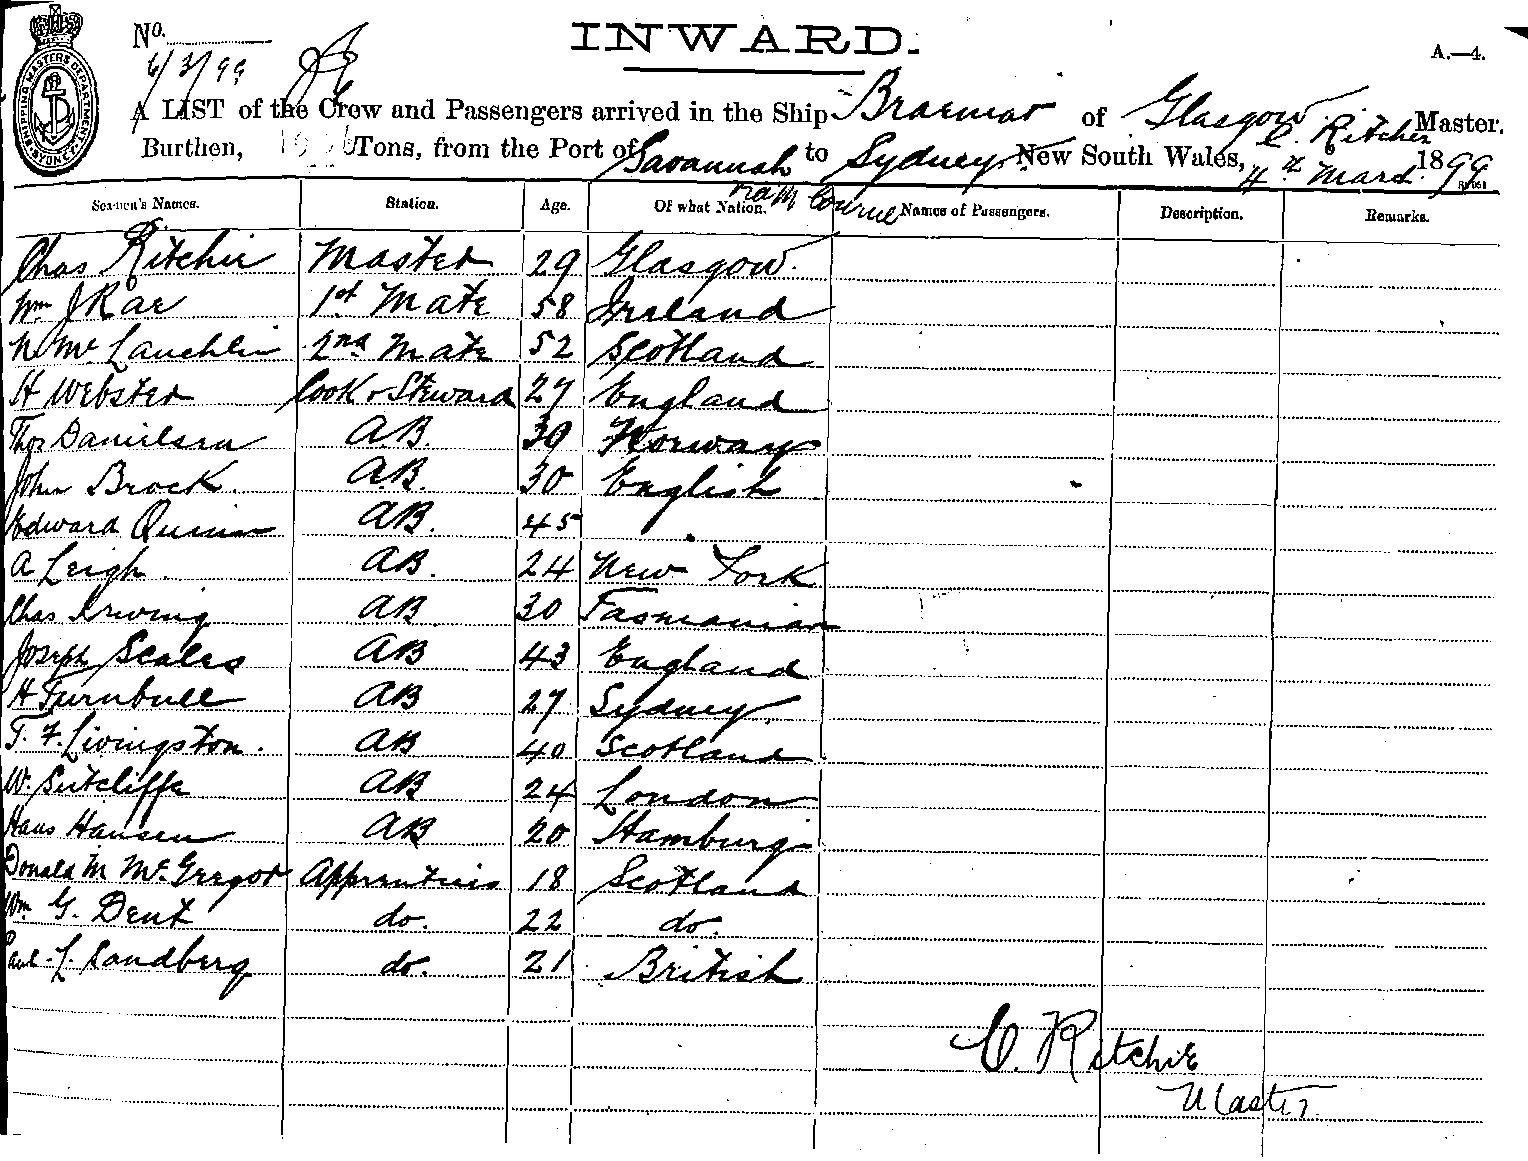 No.
INWARD.
A.—4.
6/3/99
SHIPPING MASTERS DEPARTMENT SYDNEY
A LIST of the Crew and Passengers arrived in the Ship Braemar of Glasgow C. Ritchie Master.
Burthen, Tons, from the Port of Savannah to Sydney New South Wales, 4th March 1899
Seamen's Names. Station. Age. Of what Nation. Names of Passengers. Description. Remarks.
Chas Ritchie Master 29 Glasgow.
Wm J Rae 1st Mate 58 Ireland
N Mc Lauchlin 2nd Mate 52 Scotland
H Webster Cook & Steward 27 England
Thos Danielsen A.B. 39 Norway
John Brock. A.B. 30 English
Edward Quinn A.B. 45
A Leigh. AB. 24 New York
Chas Irwing AB 30 Tasmanian
Joseph Scales AB 43 England
H Turnbull AB 27 Sydney.
T. F. Livingston. AB 40 Scotland
W. Sutcliffe AB 24 London
Hans Hansen AB 20 Hamburg
Donald M McGregor Apprentice 18 Scotland
Wm G. Dent do. 22 do.
Paul L. Sandberg do. 21 British
C. Ritchie
Master